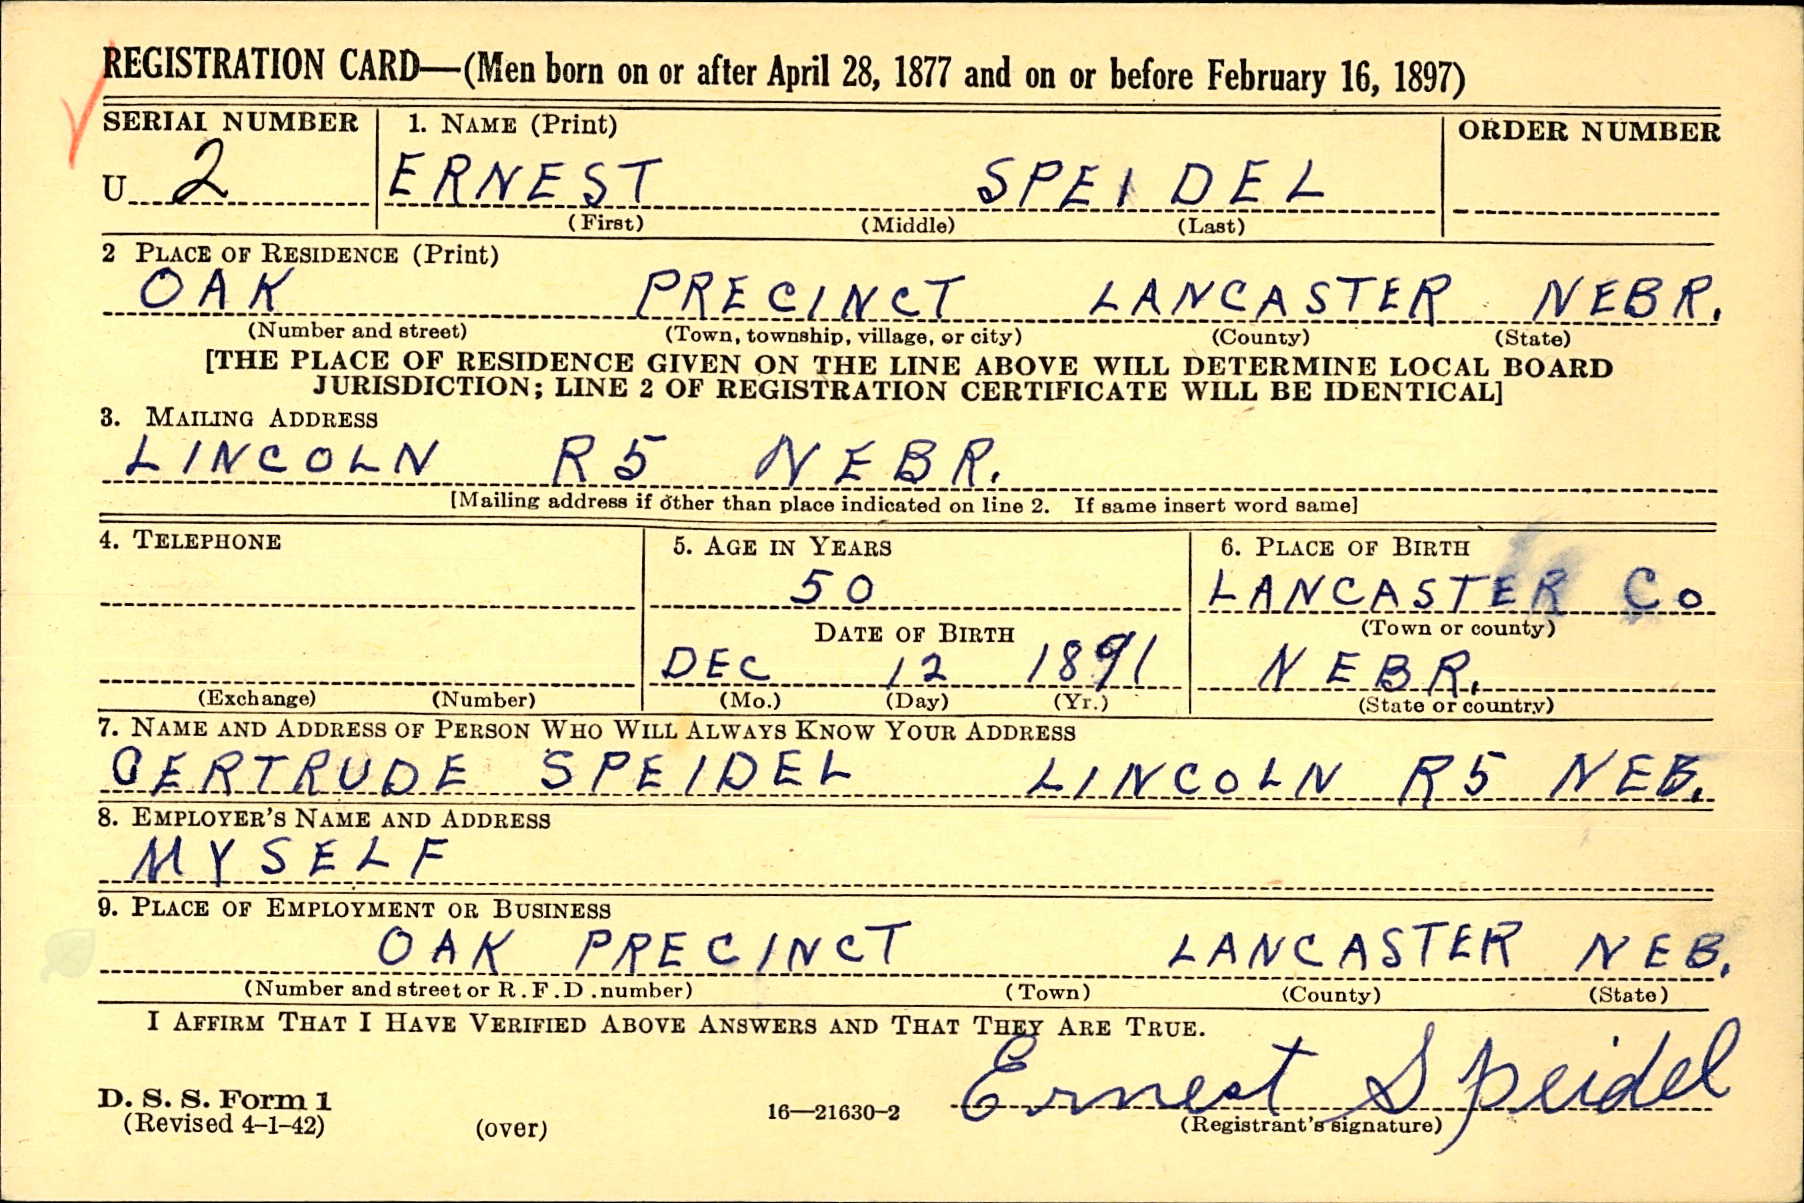 REGISTRATION CARD—(Men born on or after April 28, 1877 and on or before February 16, 1897)
SERIAL NUMBER 1. NAME (Print) ORDER NUMBER
U 2 ERNEST SPEIDEL
(First) (Middle) (Last)
2 PLACE OF RESIDENCE (Print)
OAK PRECINCT LANCASTER NEBR.
(Number and street) (Town, township, village, or city) (County) (State)
[THE PLACE OF RESIDENCE GIVEN ON THE LINE ABOVE WILL DETERMINE LOCAL BOARD
JURISDICTION; LINE 2 OF REGISTRATION CERTIFICATE WILL BE IDENTICAL]
3. MAILING ADDRESS
LINCOLN R5 NEBR.
[Mailing address if other than place indicated on line 2. If same insert word same]
4. TELEPHONE 5. AGE IN YEARS 6. PLACE OF BIRTH
50 LANCASTER Co
DATE OF BIRTH (Town or county)
DEC 12 1891 NEBR.
(Exchange) (Number) (Mo.) (Day) (Yr.) (State or country)
7. NAME AND ADDRESS OF PERSON WHO WILL ALWAYS KNOW YOUR ADDRESS
GERTRUDE SPEIDEL LINCOLN R5 NEB.
8. EMPLOYER'S NAME AND ADDRESS
MYSELF
9. PLACE OF EMPLOYMENT OR BUSINESS
OAK PRECINCT LANCASTER NEB.
(Number and street or R.F.D. number) (Town) (County) (State)
I AFFIRM THAT I HAVE VERIFIED ABOVE ANSWERS AND THAT THEY ARE TRUE.
Ernest Speidel
D. S. S. Form 1
(Revised 4-1-42) (over) 16—21630-2 (Registrant's signature)